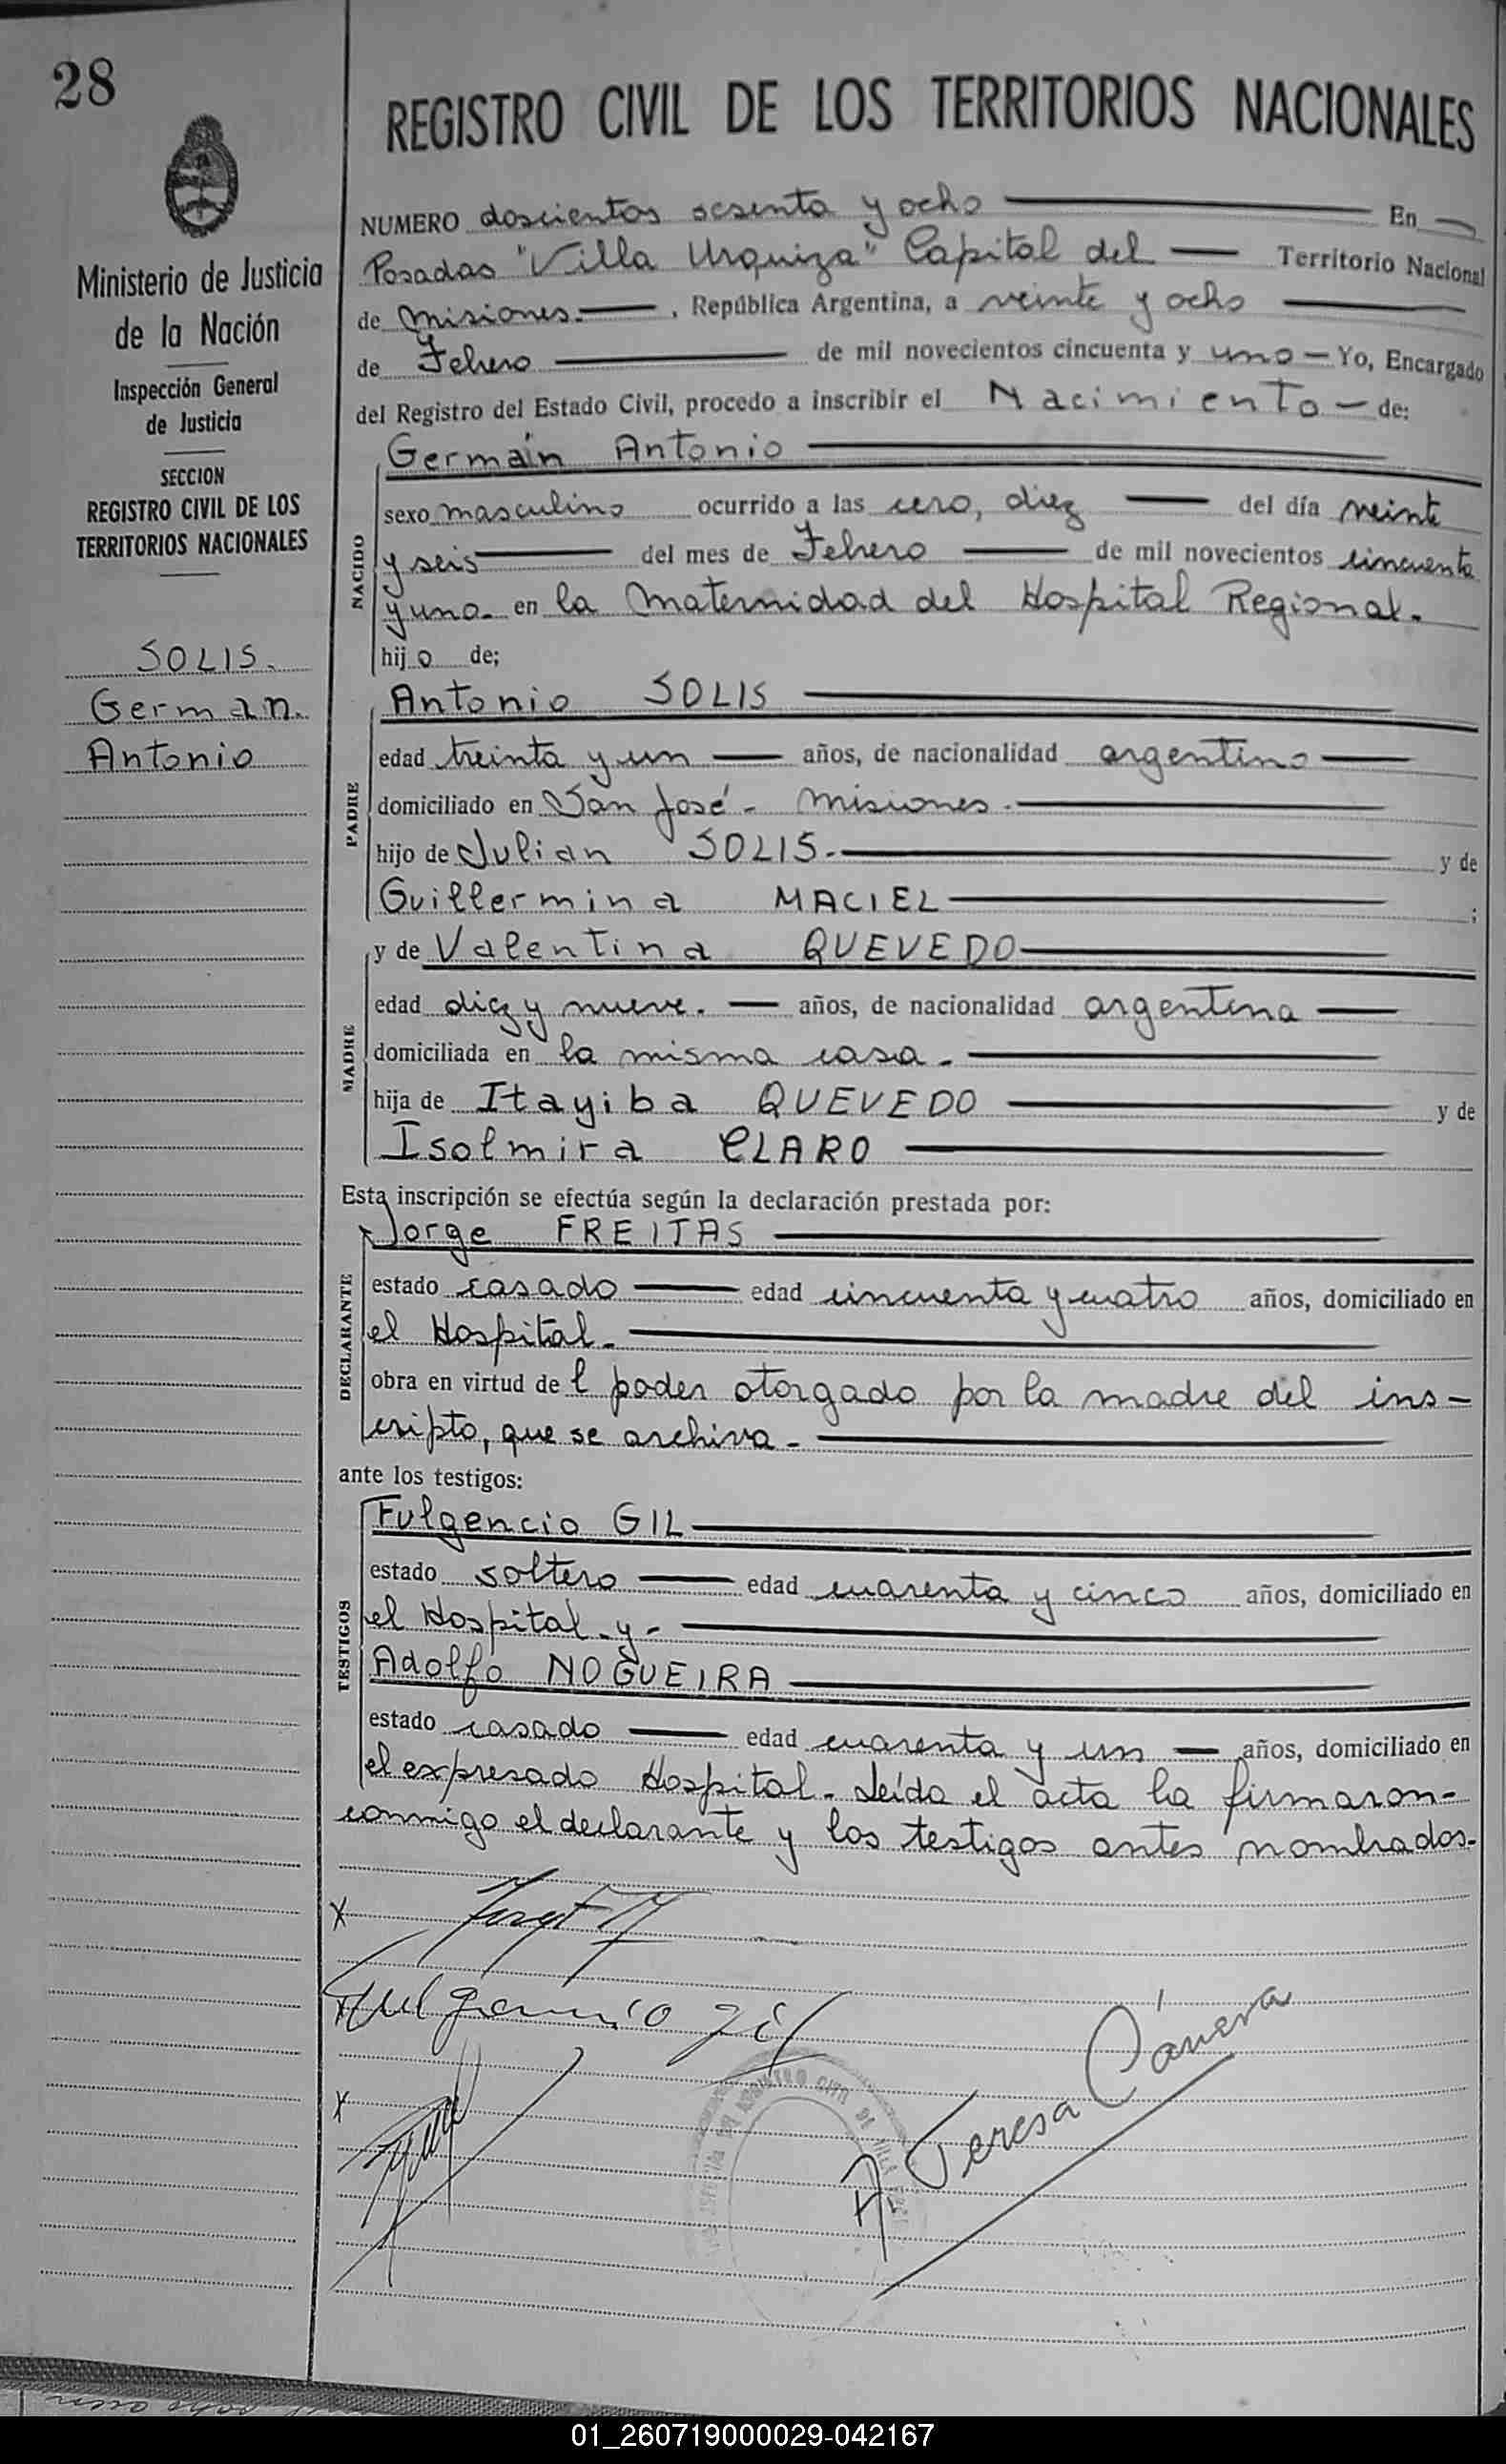 28
REGISTRO CIVIL DE LOS TERRITORIOS NACIONALES
Ministerio de Justicia
de la Nación
Inspección General
de Justicia
SECCION
REGISTRO CIVIL DE LOS
TERRITORIOS NACIONALES
SOLIS.
German.
Antonio
NUMERO doscientos sesenta y ocho En
Posadas "Villa Urquiza" Capital del Territorio Nacional
de Misiones. , República Argentina, a veinte y ocho
de Febrero de mil novecientos cincuenta y uno Yo, Encargado
del Registro del Estado Civil, procedo a inscribir el Nacimiento de:
NACIDO
Germán Antonio
sexo masculino ocurrido a las cero, diez del día veinte
y seis del mes de Febrero de mil novecientos cincuenta
y uno en la Maternidad del Hospital Regional.
hijo de;
PADRE
Antonio SOLIS
edad treinta y un años, de nacionalidad argentino
domiciliado en San José - Misiones.
hijo de Julian SOLIS. y de
Guillermina MACIEL ;
MADRE
y de Valentina QUEVEDO
edad diez y nueve. años, de nacionalidad argentina
domiciliada en la misma casa.
hija de Itayiba QUEVEDO y de
Isolmira CLARO
Esta inscripción se efectúa según la declaración prestada por:
DECLARANTE
Jorge FREITAS
estado casado edad cincuenta y cuatro años, domiciliado en
el Hospital.
obra en virtud de l poder otorgado por la madre del ins-
cripto, que se archiva.
ante los testigos:
TESTIGOS
Fulgencio GIL
estado soltero edad cuarenta y cinco años, domiciliado en
el Hospital y-
Adolfo NOGUEIRA
estado casado edad cuarenta y un años, domiciliado en
el expresado Hospital. Leída el acta la firmaron
conmigo el declarante y los testigos antes nombrados.
X
Fulgencio Gil
X
A. Teresa Cánera
01_260719000029-042167